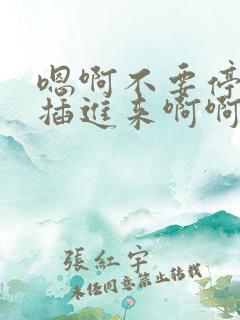 嗯啊不要停
插進来啊啊
張紅宇
未经同意禁止转载